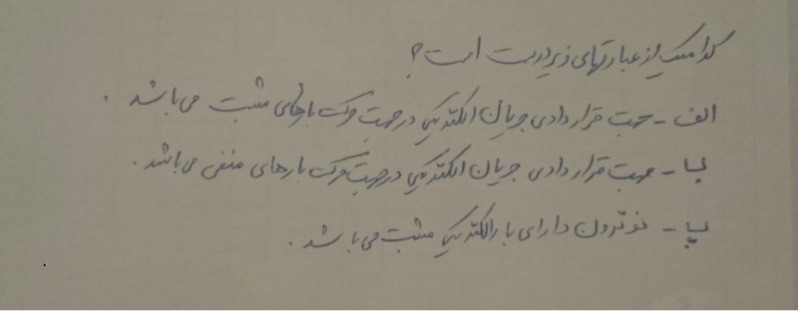 کدامیک از عبارتهای زیر درست است؟
الف - جهت قراردادی جریان الکتریکی در جهت حرکت بارهای مثبت می باشد .
ب - جهت قراردادی جریان الکتریکی در جهت حرکت بارهای منفی می باشد .
پ - نوترون دارای بار الکتریکی مثبت می باشد .